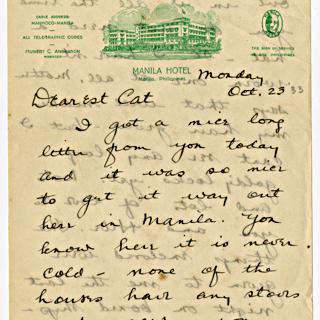 CABLE ADDRESS
MANHOCO-MANILA
ALL TELEGRAPHIC CODES
HUBERT C. ANDERSON
MANAGER
THE SIGN OF SERVICE
IN THE PHILIPPINES
MANILA HOTEL
Manila, Philippines
Monday
Oct. 23 33
Dearest Cat
I got a nice long
letter from you today
and it was so nice
to get it way out
here in Manila. You
know here it is never
cold - none of the
houses have any stoves